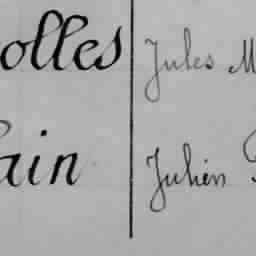 olles Jules M
ain Julien